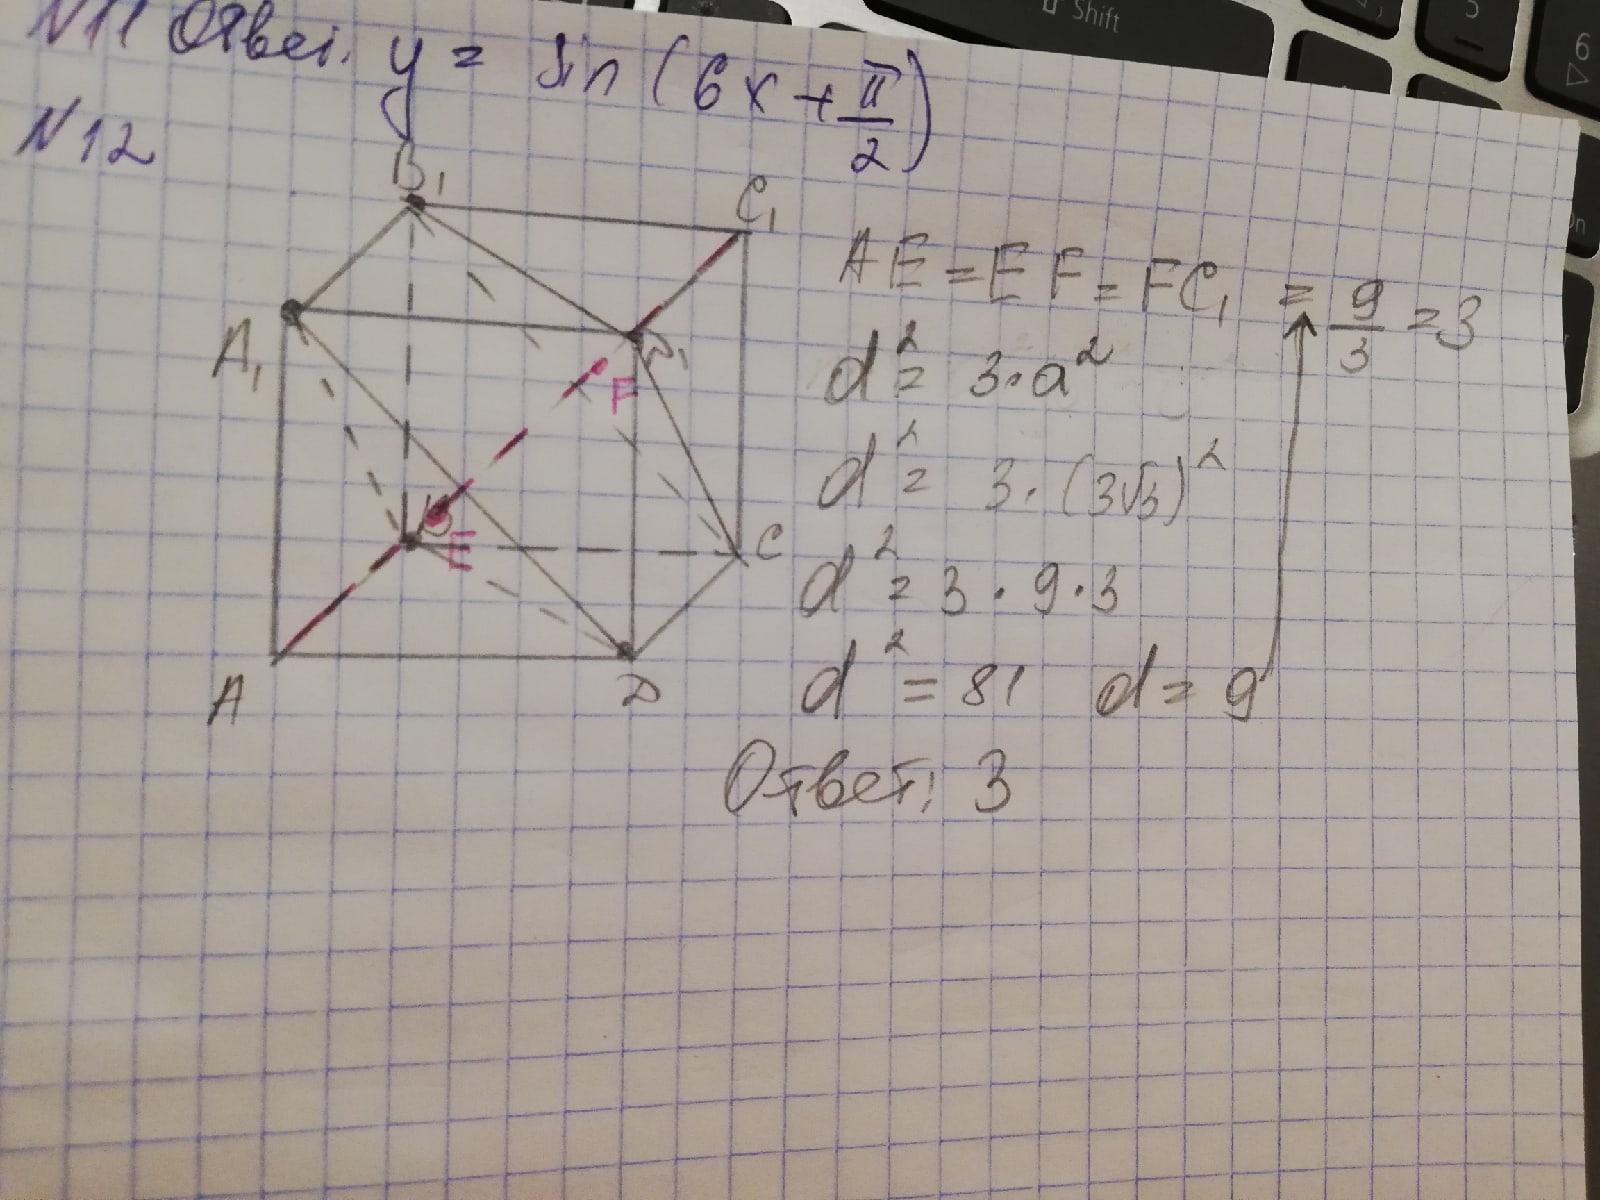 N11 Ответ. y = sin (6x + π/2)
N12
B₁
C₁
A₁
D₁
F
B
E
C
A
D
AE = EF = FC₁ = 9/3 = 3
d² = 3·a²
d² = 3·(3√3)²
d² = 3·9·3
d² = 81 d = 9
Ответ: 3
Shift
6